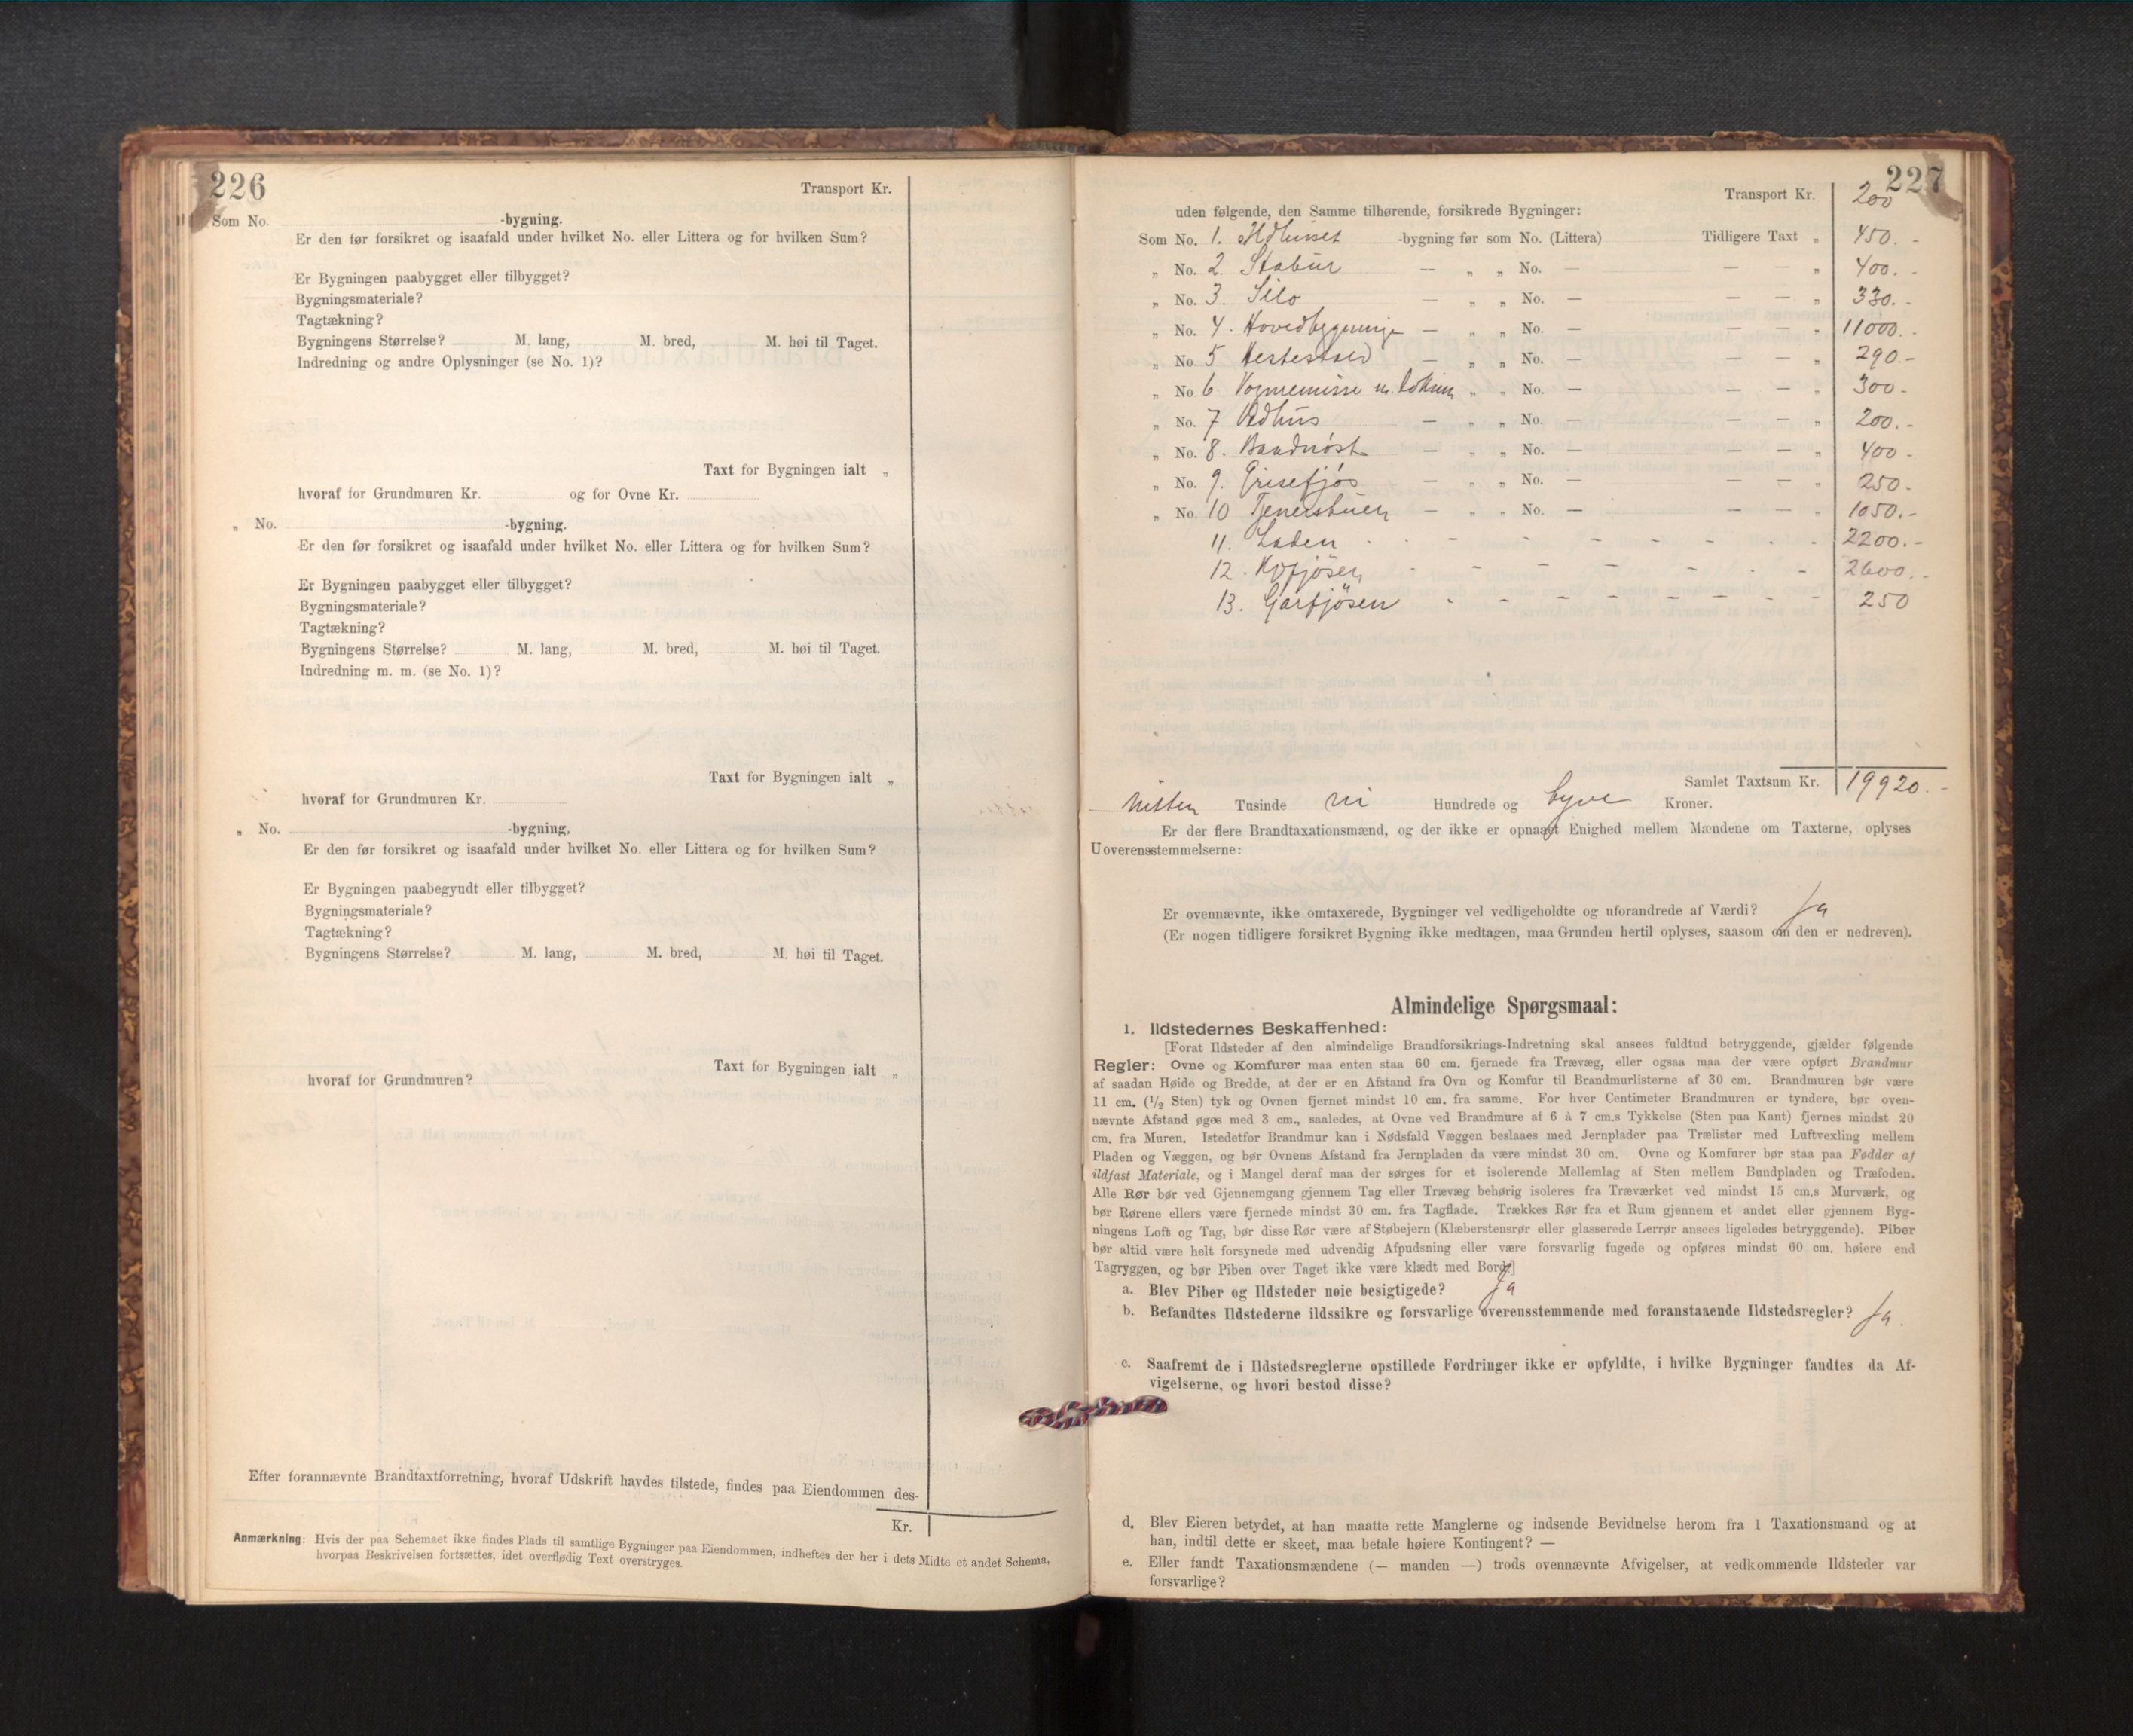 226
Transport Kr.
Som No. -bygning.
Er den før forsikret og isaafald under hvilket No. eller Littera og for hvilken Sum?
Er Bygningen paabygget eller tilbygget?
Bygningsmateriale?
Tagtækning?
Bygningens Størrelse? M. lang, M. bred, M. høi til Taget.
Indredning og andre Oplysninger (se No. 1)?
Taxt for Bygningen ialt „
hvoraf for Grundmuren Kr. og for Ovne Kr.
„ No. -bygning.
Er den før forsikret og isaafald under hvilket No. eller Littera og for hvilken Sum?
Er Bygningen paabygget eller tilbygget?
Bygningsmateriale?
Tagtækning?
Bygningens Størrelse? M. lang, M. bred, M. høi til Taget.
Indredning m. m. (se No. 1)?
Taxt for Bygningen ialt „
hvoraf for Grundmuren Kr.
„ No. -bygning.
Er den før forsikret og isaafald under hvilket No. eller Littera og for hvilken Sum?
Er Bygningen paabegyndt eller tilbygget?
Bygningsmateriale?
Tagtækning?
Bygningens Størrelse? M. lang, M. bred, M. høi til Taget.
Taxt for Bygningen ialt „
hvoraf for Grundmuren?
Efter forannævnte Brandtaxtforretning, hvoraf Udskrift havdes tilstede, findes paa Eiendommen des-
Kr.
Anmærkning: Hvis der paa Schemaet ikke findes Plads til samtlige Bygninger paa Eiendommen, indheftes der her i dets Midte et andet Schema,
hvorpaa Beskrivelsen fortsættes, idet overflødig Text overstryges.
227
Transport Kr. 200
uden følgende, den Samme tilhørende, forsikrede Bygninger:
Som No. 1. Ildhuset -bygning før som No. (Littera) Tidligere Taxt „ 450. -
„ No. 2. Stabur — „ „ No. — — — „ 400. -
„ No. 3. Silo — „ „ No. — — — „ 330. -
„ No. 4. Hovedbygninge — „ „ No. — — — „ 11000. -
„ No. 5 Hestestald — „ „ No. — — — „ 290.-
„ No. 6 Vognremisse m. „ „ No. — — — „ 300 -
„ No. 7 Vedhus — „ „ No. — — — „ 200. -
„ No. 8. Baadnöst — „ „ No. — — — „ 400 -
„ No. 9. Grisefjös — „ „ No. — — — „ 250 -
„ No. 10 Tjenerstuen — „ „ No. — — — „ 1050.-
11. Laden - - - - - - - - - 2200. -
12. Kofjösen - - - - - - - 2600. -
13. Garfjösen - - - - - - - - 250
Samlet Taxtsum Kr. 19920. -
Nitten Tusinde ni Hundrede og tyve Kroner.
Er der flere Brandtaxationsmænd, og der ikke er opnaaet Enighed mellem Mændene om Taxterne, oplyses
Uoverensstemmelserne:
Er ovennævnte, ikke omtaxerede, Bygninger vel vedligeholdte og uforandrede af Værdi? Ja
(Er nogen tidligere forsikret Bygning ikke medtagen, maa Grunden hertil oplyses, saasom om den er nedreven).
Almindelige Spørgsmaal:
1. Ildstedernes Beskaffenhed:
[Forat Ildsteder af den almindelige Brandforsikrings-Indretning skal ansees fuldtud betryggende, gjælder følgende
Regler: Ovne og Komfurer maa enten staa 60 cm. fjernede fra Trævæg, eller ogsaa maa der være opført Brandmur
af saadan Høide og Bredde, at der er en Afstand fra Ovn og Komfur til Brandmurlisterne af 30 cm. Brandmuren bør være
11 cm. (1/2 Sten) tyk og Ovnen fjernet mindst 10 cm. fra samme. For hver Centimeter Brandmuren er tyndere, bør oven-
nævnte Afstand øges med 3 cm., saaledes, at Ovne ved Brandmure af 6 à 7 cm.s Tykkelse (Sten paa Kant) fjernes mindst 20
cm. fra Muren. Istedetfor Brandmur kan i Nødsfald Væggen beslaaes med Jernplader paa Trælister med Luftvexling mellem
Pladen og Væggen, og bør Ovnens Afstand fra Jernpladen da være mindst 30 cm. Ovne og Komfurer bør staa paa Fødder af
ildfast Materiale, og i Mangel deraf maa der sørges for et isolerende Mellemlag af Sten mellem Bundpladen og Træfoden.
Alle Rør bør ved Gjennemgang gjennem Tag eller Trævæg behørig isoleres fra Træværket ved mindst 15 cm.s Murværk, og
bør Rørene ellers være fjernede mindst 30 cm. fra Tagflade. Trækkes Rør fra et Rum gjennem et andet eller gjennem Byg-
ningens Loft og Tag, bør disse Rør være af Støbejern (Klæberstensrør eller glasserede Lerrør ansees ligeledes betryggende). Piber
bør altid være helt forsynede med udvendig Afpudsning eller være forsvarlig fugede og opføres mindst 60 cm. høiere end
Tagryggen, og bør Piben over Taget ikke være klædt med Bord.]
a. Blev Piber og Ildsteder nøie besigtigede? Ja
b. Befandtes Ildstederne ildssikre og forsvarlige overensstemmende med foranstaaende Ildstedsregler? Ja.
c. Saafremt de i Ildstedsreglerne opstillede Fordringer ikke er opfyldte, i hvilke Bygninger fandtes da Af-
vigelserne, og hvori bestod disse?
d. Blev Eieren betydet, at han maatte rette Manglerne og indsende Bevidnelse herom fra 1 Taxationsmand og at
han, indtil dette er skeet, maa betale høiere Kontingent? —
e. Eller fandt Taxationsmændene (— manden —) trods ovennævnte Afvigelser, at vedkommende Ildsteder var
forsvarlige?